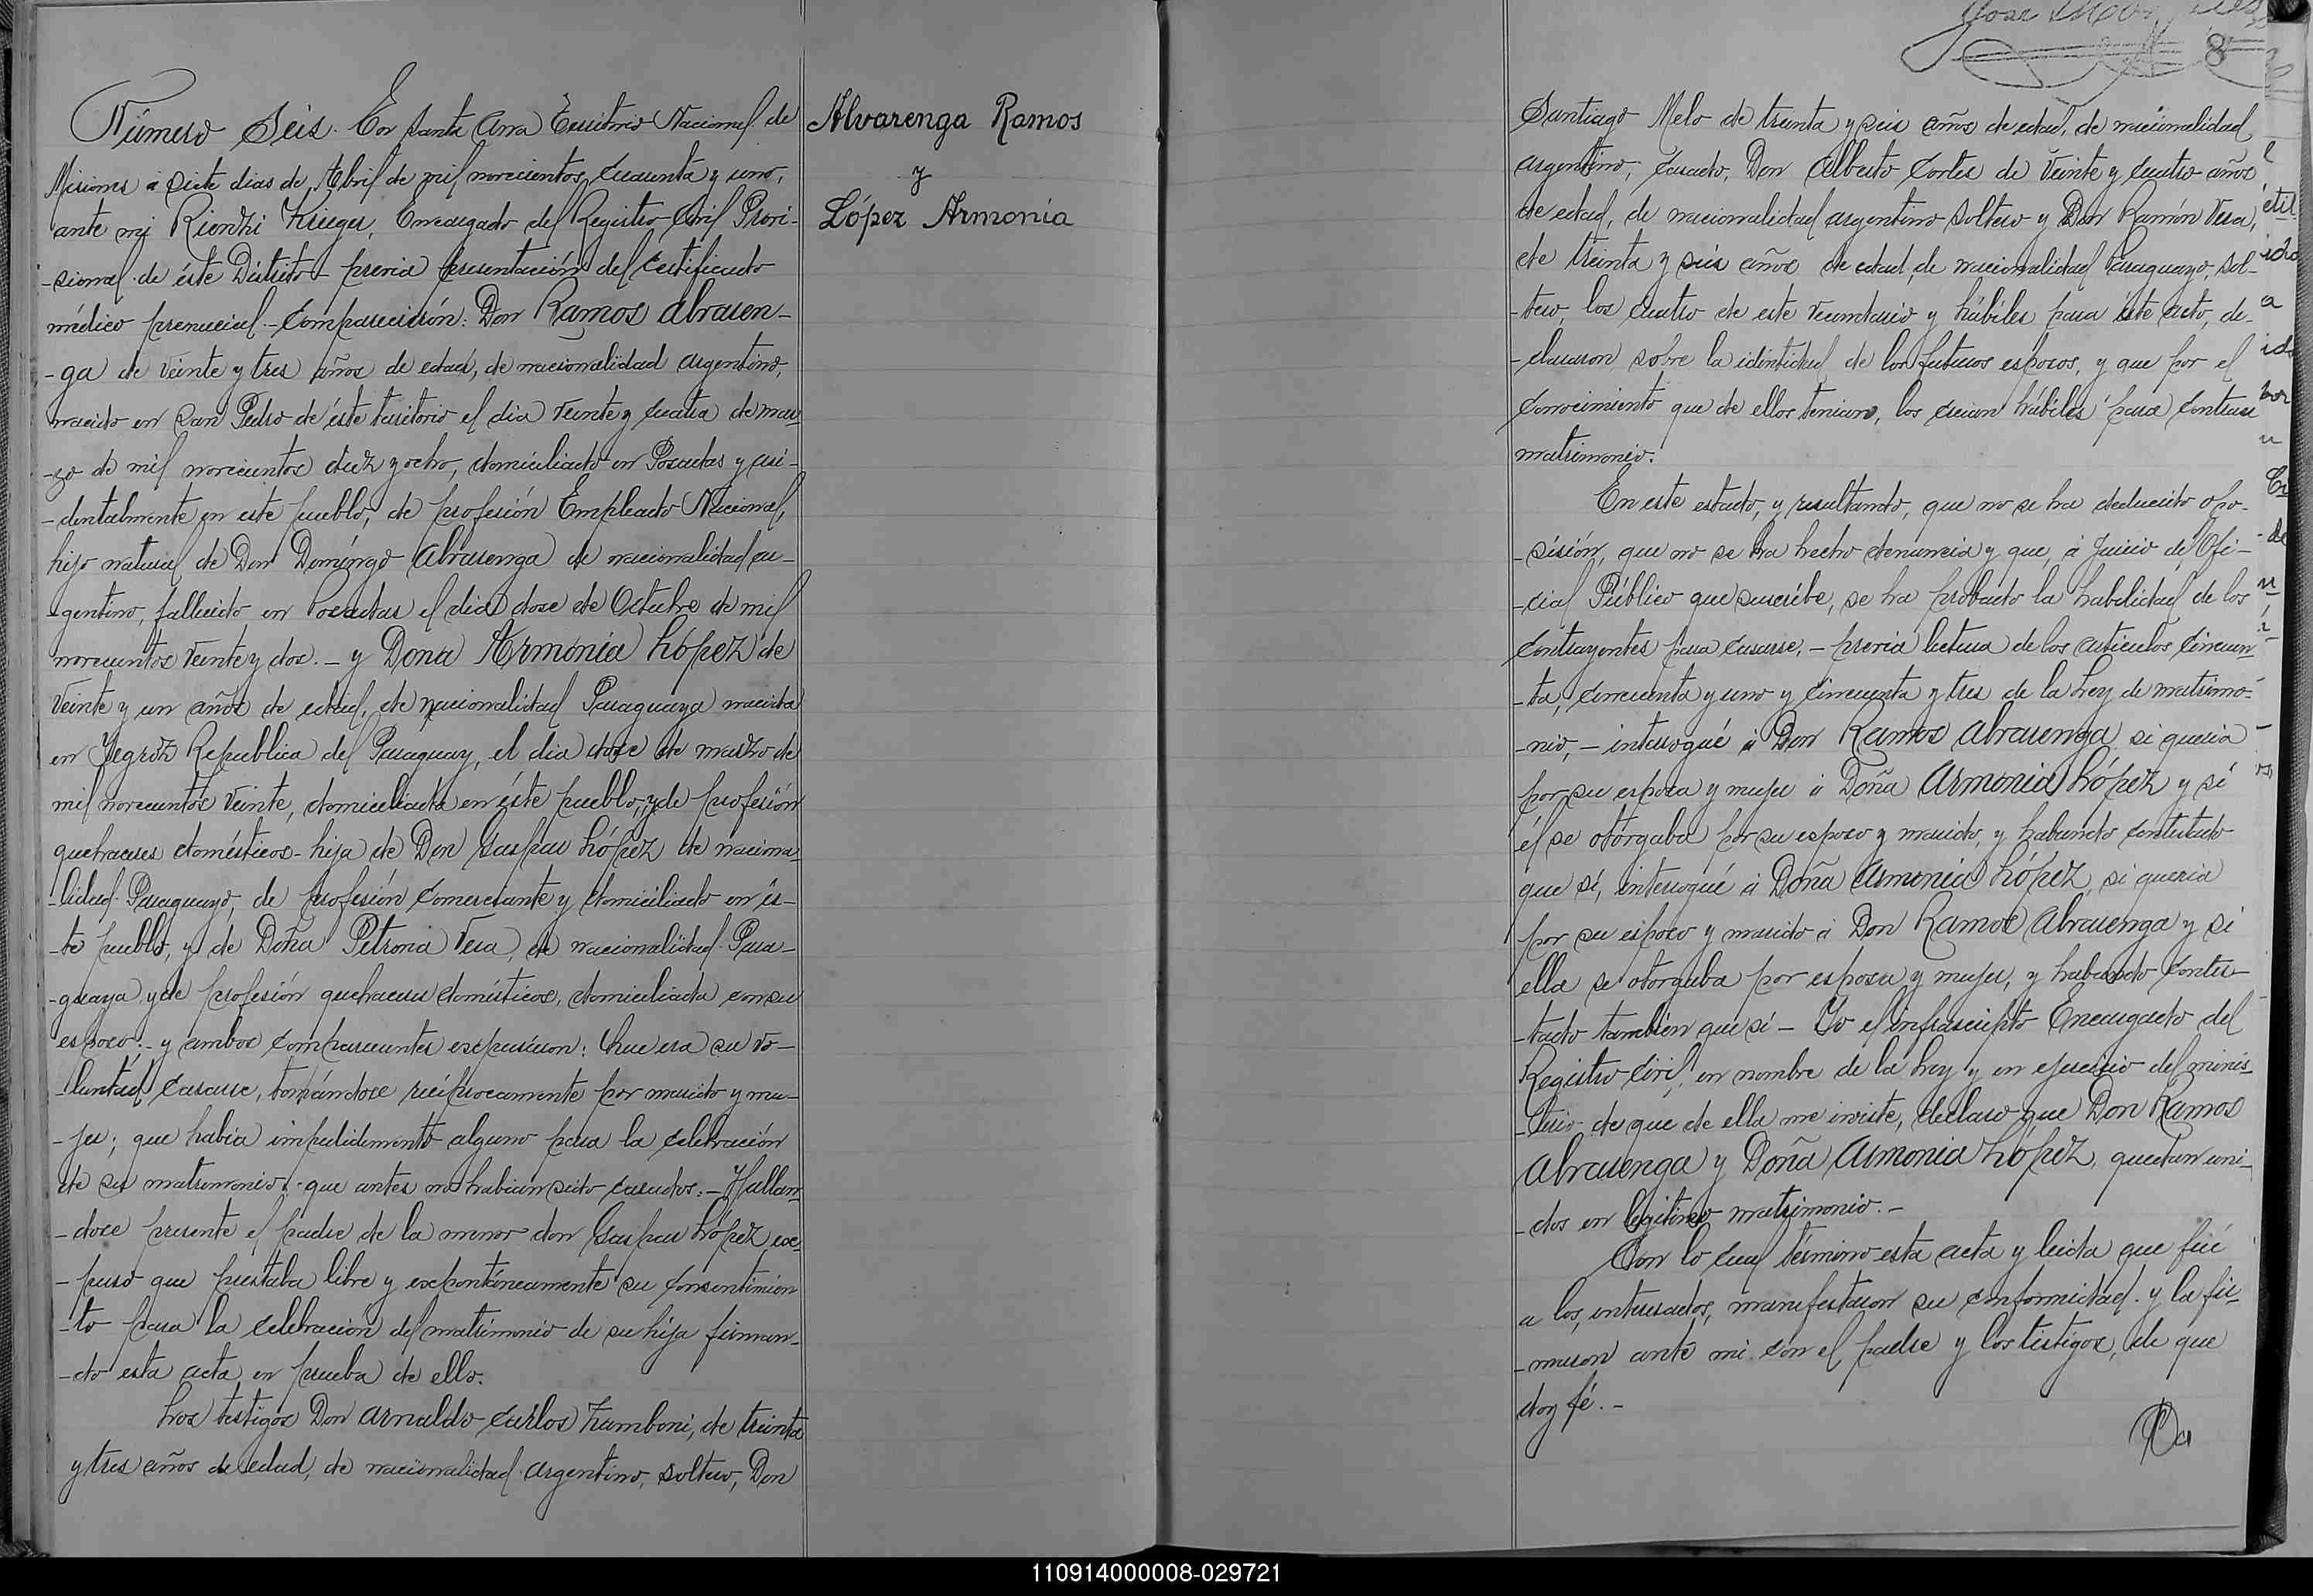 Número Seis. En Santa Ana Territorio Nacional de
Misiones á siete dias de Abril de mil novecientos cuarenta y uno,
ante mi Riendzi Krieger, Encargado del Registro Civil Provi-
-sional de éste Distrito - previa presentación del certificado
médico prenupcial.- Comparecieron: Don Ramos Alvaren-
-ga de veinte y tres años de edad, de nacionalidad argentino,
nacido en San Pedro de éste territorio el dia veinte y cuatro de mar-
-zo de mil novecientos diez y ocho, domiciliado en Posadas y acci-
-dentalmente en este pueblo, de profesión Empleado Nacional,
hijo natural de Don Domingo Alvarenga de nacionalidad ar-
-gentino, fallecido en Posadas el dia doce de Octubre de mil
novecientos veinte y dos.- y Dona Armonía López de
veinte y un años de edad, de nacionalidad Paraguaya nacida
en Yegroz Republica del Paraguay, el dia doce de marzo de
mil novecientos veinte, domiciliada en éste pueblo, y de profesión
quehaceres domésticos - hija de Don Gaspar López de naciona-
-lidad Paraguayo, de profesión comerciante y domiciliado en és-
-te pueblo, y de Doña Petrona Vera, de nacionalidad Para-
-guaya y de profesión quehaceres domésticos, domiciliada con su
esposo:- y ambos comparecientes expusieron: Que era su vo-
-luntad casarse, tomándose recíprocamente por marido y mu-
-jer; que habia impedidemento alguno para la celebración
de su matrimonio y que antes no habian sido casados.- Hallan-
-dose presente el padre de la menor don Gaspar López ex-
-puso que prestaba libre y expontáneamente su consentimien
-to para la celebración del matrimonio de su hija firman-
-do esta acta en prueba de ello.
Los testigos Don Arnaldo Carlos Zamboni, de treinta
y tres años de edad, de nacionalidad argentino, soltero, Don
Alvarenga Ramos
y
López Armonía
8
Santiago Melo de treinta y seis años de edad, de nacionalidad
argentino, casado, Don Alberto Cortes de veinte y cuatro años
de edad, de nacionalidad argentino soltero y Don Ramón Vera,
de treinta y seis años de edad, de nacionalidad Paraguayo, sol-
-tero, los cuatro de este vecindario y hábiles para éste acto, de-
-clararon sobre la identidad de los futuros esposos, y que por el
conocimiento que de ellos tenian, los creian hábiles para contraer
matrimonio.
En este estado, y resultando, que no se ha deducido opo-
-sición, que no se ha hecho denuncia y que, á juicio del Ofi-
-cial Público que suscribe, se ha probado la habilidad de los
contrayentes para casarse, - previa lectura de los articulos cincuen-
-ta, cincuenta y uno y cincuenta y tres de la Ley de matrimo-
-nio, - interrogué á Don Ramos Alvarenga si queria
por su esposa y mujer á Doña Armonia López y si
él se otorgaba por su esposo y marido, y habiendo contestado
que sí, interrogué á Doña Armonia López, si queria
por su esposo y marido á Don Ramos Alvarenga y si
ella se otorgaba por esposa y mujer, y habiendo contes-
-tado también que sí - Yo el infrascripto Encargado del
Registro Civil, en nombre de la Ley y en ejercicio del minis-
-terio de que de ella me inviste, declaro que Don Ramos
Alvarenga y Doña Armonia López, quedan uni-
-dos en legitimo matrimonio.-
Con lo cual términó esta acta y leida que fué
a los interesados, manifestaron su conformidad. y la fir-
-maron ante mi con el padre y los testigos, de que
doy fé.-
110914000008-029721